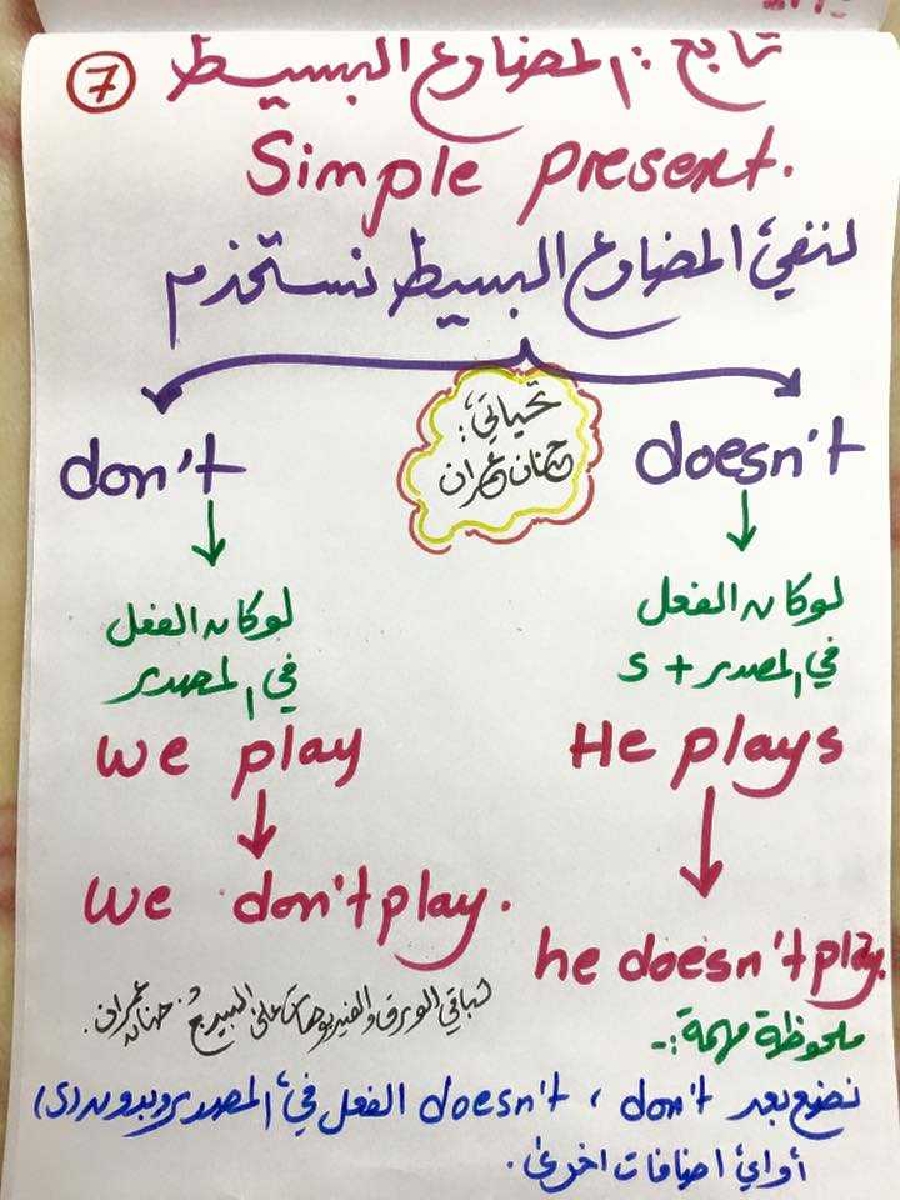 7
تابع: المضارع البسيط
Simple present.
لنفي المضارع البسيط نستخدم
doesn't
don't
تحياتي:
حنان عمران
لو كان الفعل
في المصدر + s
He plays
he doesn't play.
لو كان الفعل
في المصدر
we play
we don't play.
لباقي الورق والفيديوهات على البيدج: حنان عمران.
ملحوظة مهمة:-
نضع بعد don't ، doesn't الفعل في المصدر وبدون (s)
أو أي اضافات اخرى.